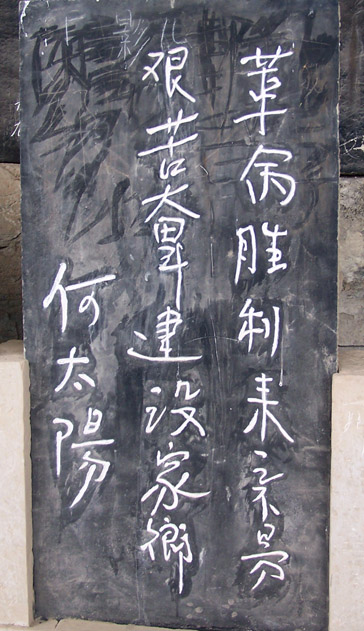 革命胜利来之不易
艰苦奋斗建设家鄉
何太陽